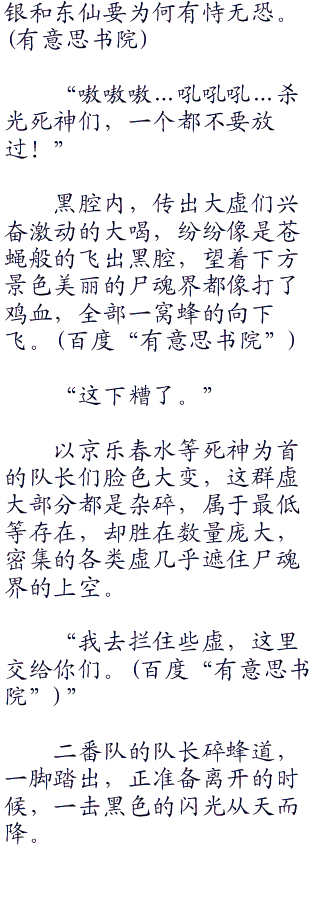 银和东仙要为何有恃无恐。
(有意思书院)
“嗷嗷嗷…吼吼吼…杀
光死神们，一个都不要放
过！”
黑腔内，传出大虚们兴
奋激动的大喝，纷纷像是苍
蝇般的飞出黑腔，望着下方
景色美丽的尸魂界都像打了
鸡血，全部一窝蜂的向下
飞。(百度“有意思书院”)
“这下糟了。”
以京乐春水等死神为首
的队长们脸色大变，这群虚
大部分都是杂碎，属于最低
等存在，却胜在数量庞大，
密集的各类虚几乎遮住尸魂
界的上空。
“我去拦住些虚，这里
交给你们。(百度“有意思书
院”)”
二番队的队长碎蜂道，
一脚踏出，正准备离开的时
候，一击黑色的闪光从天而
降。